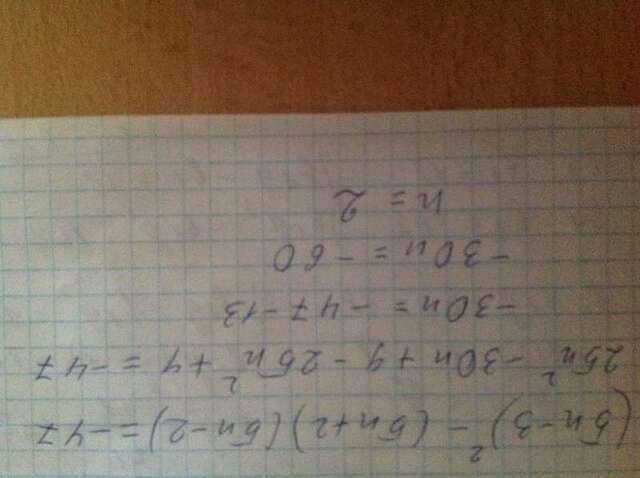 (5n-3)² - (5n+2)(5n-2) = -47
25n² - 30n + 9 - 25n² + 4 = -47
-30n = -47-13
-30n = -60
n = 2